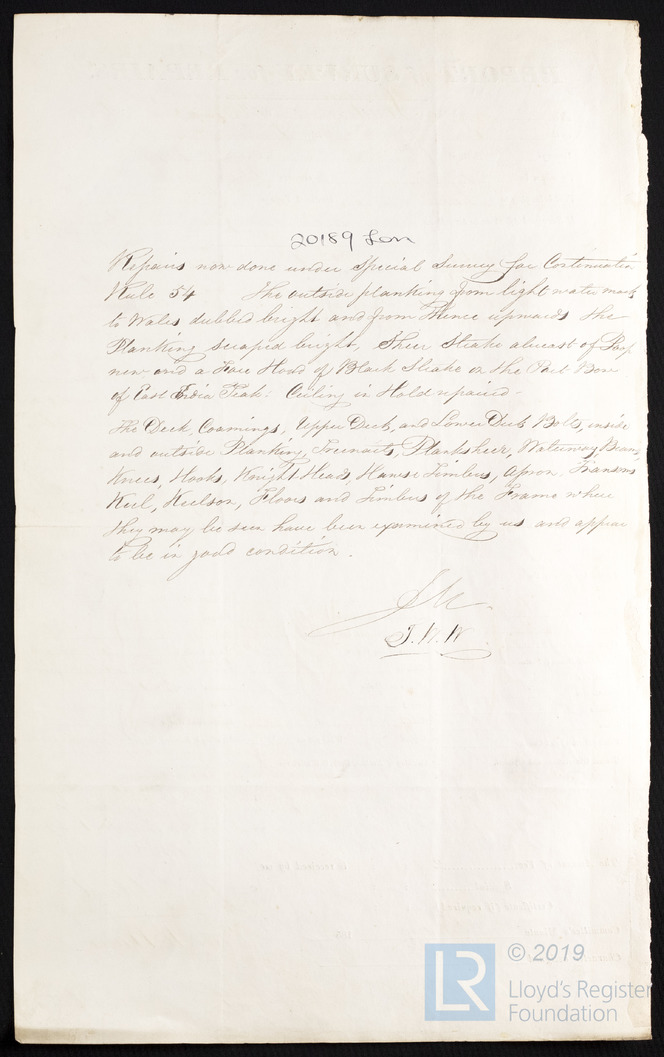 20189 Lon
Repairs now done under Special Survey for Continuation
Rule 54 The outside planking from light water mark
to Wales dubbed bright and from thence upwards the
Planking scraped bright, Sheer Strake abreast of Poop
new and a Fore Hood of Black Strake on the Port Bow
of East India Teak: Ceiling in Hold repaired -
The Deck, Coamings, Upper Deck, and Lower Deck Bolts, inside
and outside Planking, Treenails, Planksheer, Waterway Beams,
Knees, Hooks, Knight Heads, Hawse Timbers, Apron, Transoms
Keel, Keelson, Floors and Timbers of the Frame where
they may be seen have been examined by us and appear
to be in good condition.
J.W.W.
© 2019
LR
Lloyd's Register
Foundation